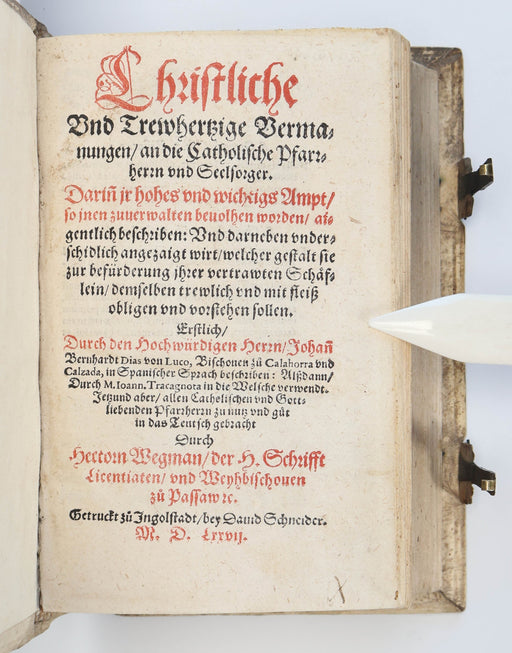 Christliche
Vnd Trewhertzige Verma-
nungen/ an die Catholische Pfarr-
herrn vnd Seelsorger.
Dariñ jr hohes vnd wichtigs Ampt/
so jnen zuuerwalten beuolhen worden/ ai-
gentlich beschriben: Vnd darneben vnder-
schidlich angezaigt wirt/ welcher gestalt sie
zur befürderung jhrer vertrawten Schäf-
lein/ demselben trewlich vnd mit fleiß
obligen vnd vorstehen sollen.
Erstlich/
Durch den Hochwürdigen Herrn/ Johañ
Bernhardt Dias von Luco, Bischouen zů Calahorra vnd
Calzada, in Spanischer Sprach beschriben: Alßdann/
Durch M. Ioann. Tracagnota in die Welsche verwendt.
Jetzund aber/ allen Catholischen vnd Gott-
liebenden Pfarrherrn zu nutz vnd gůt
in das Teutsch gebracht
Durch
Hectorn Wegman/ der H. Schrifft
Licentiaten/ vnd Weyhbischouen
zů Passaw ꝛc.
Getruckt zů Ingolstadt/ bey Dauid Schneider.
M. D. Lxxvij.
X